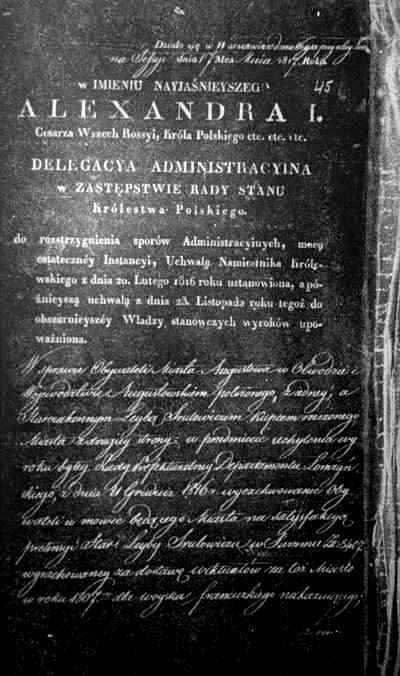 Działo się w Warszawie
na Sessyi dnia 17 Mca Maia 1817 Roku
45
w IMIENIU NAYJAŚNIEYSZEGO
ALEXANDRA I.
Cesarza Wszech Rossyi, Króla Polskiego etc. etc. etc.
DELEGACYA ADMINISTRACYINA
w ZASTĘPSTWIE RADY STANU
Królestwa Polskiego.
do rozstrzygnienia sporów Administracyinych, mocą
ostateczney Instancyi, Uchwałą Namiestnika Króle-
wskiego z dnia 20. Lutego 1816 roku ustanowiona, a pó-
źnieyszą uchwałą z dnia 23. Listopada roku tegoż do
obszernieyszéy Władzy stanowczych wyroków upo-
ważniona.
W sprawie Obywateli Miasta Augustowa w Obwodzie i
Wojewodztwie Augustowskim położonego, z iedney, a
Starozakonnym Leybą Srulowiczem kupcem rzeczonego
Miasta z drugiey strony, w przedmiocie uchylenia wy
roku byłey Rady Prefekturalney Departamentu Łomżyń
skiego, z dnia 11 Grudnia 1816 r.
wateli w mowie będącego Miasta na satysfakcyą
pretensyi Star: Leyby Srulowicza w Summie
za dostawę wiktuałów na toż Miasto
w roku 1807 dla woyska francuzkiego